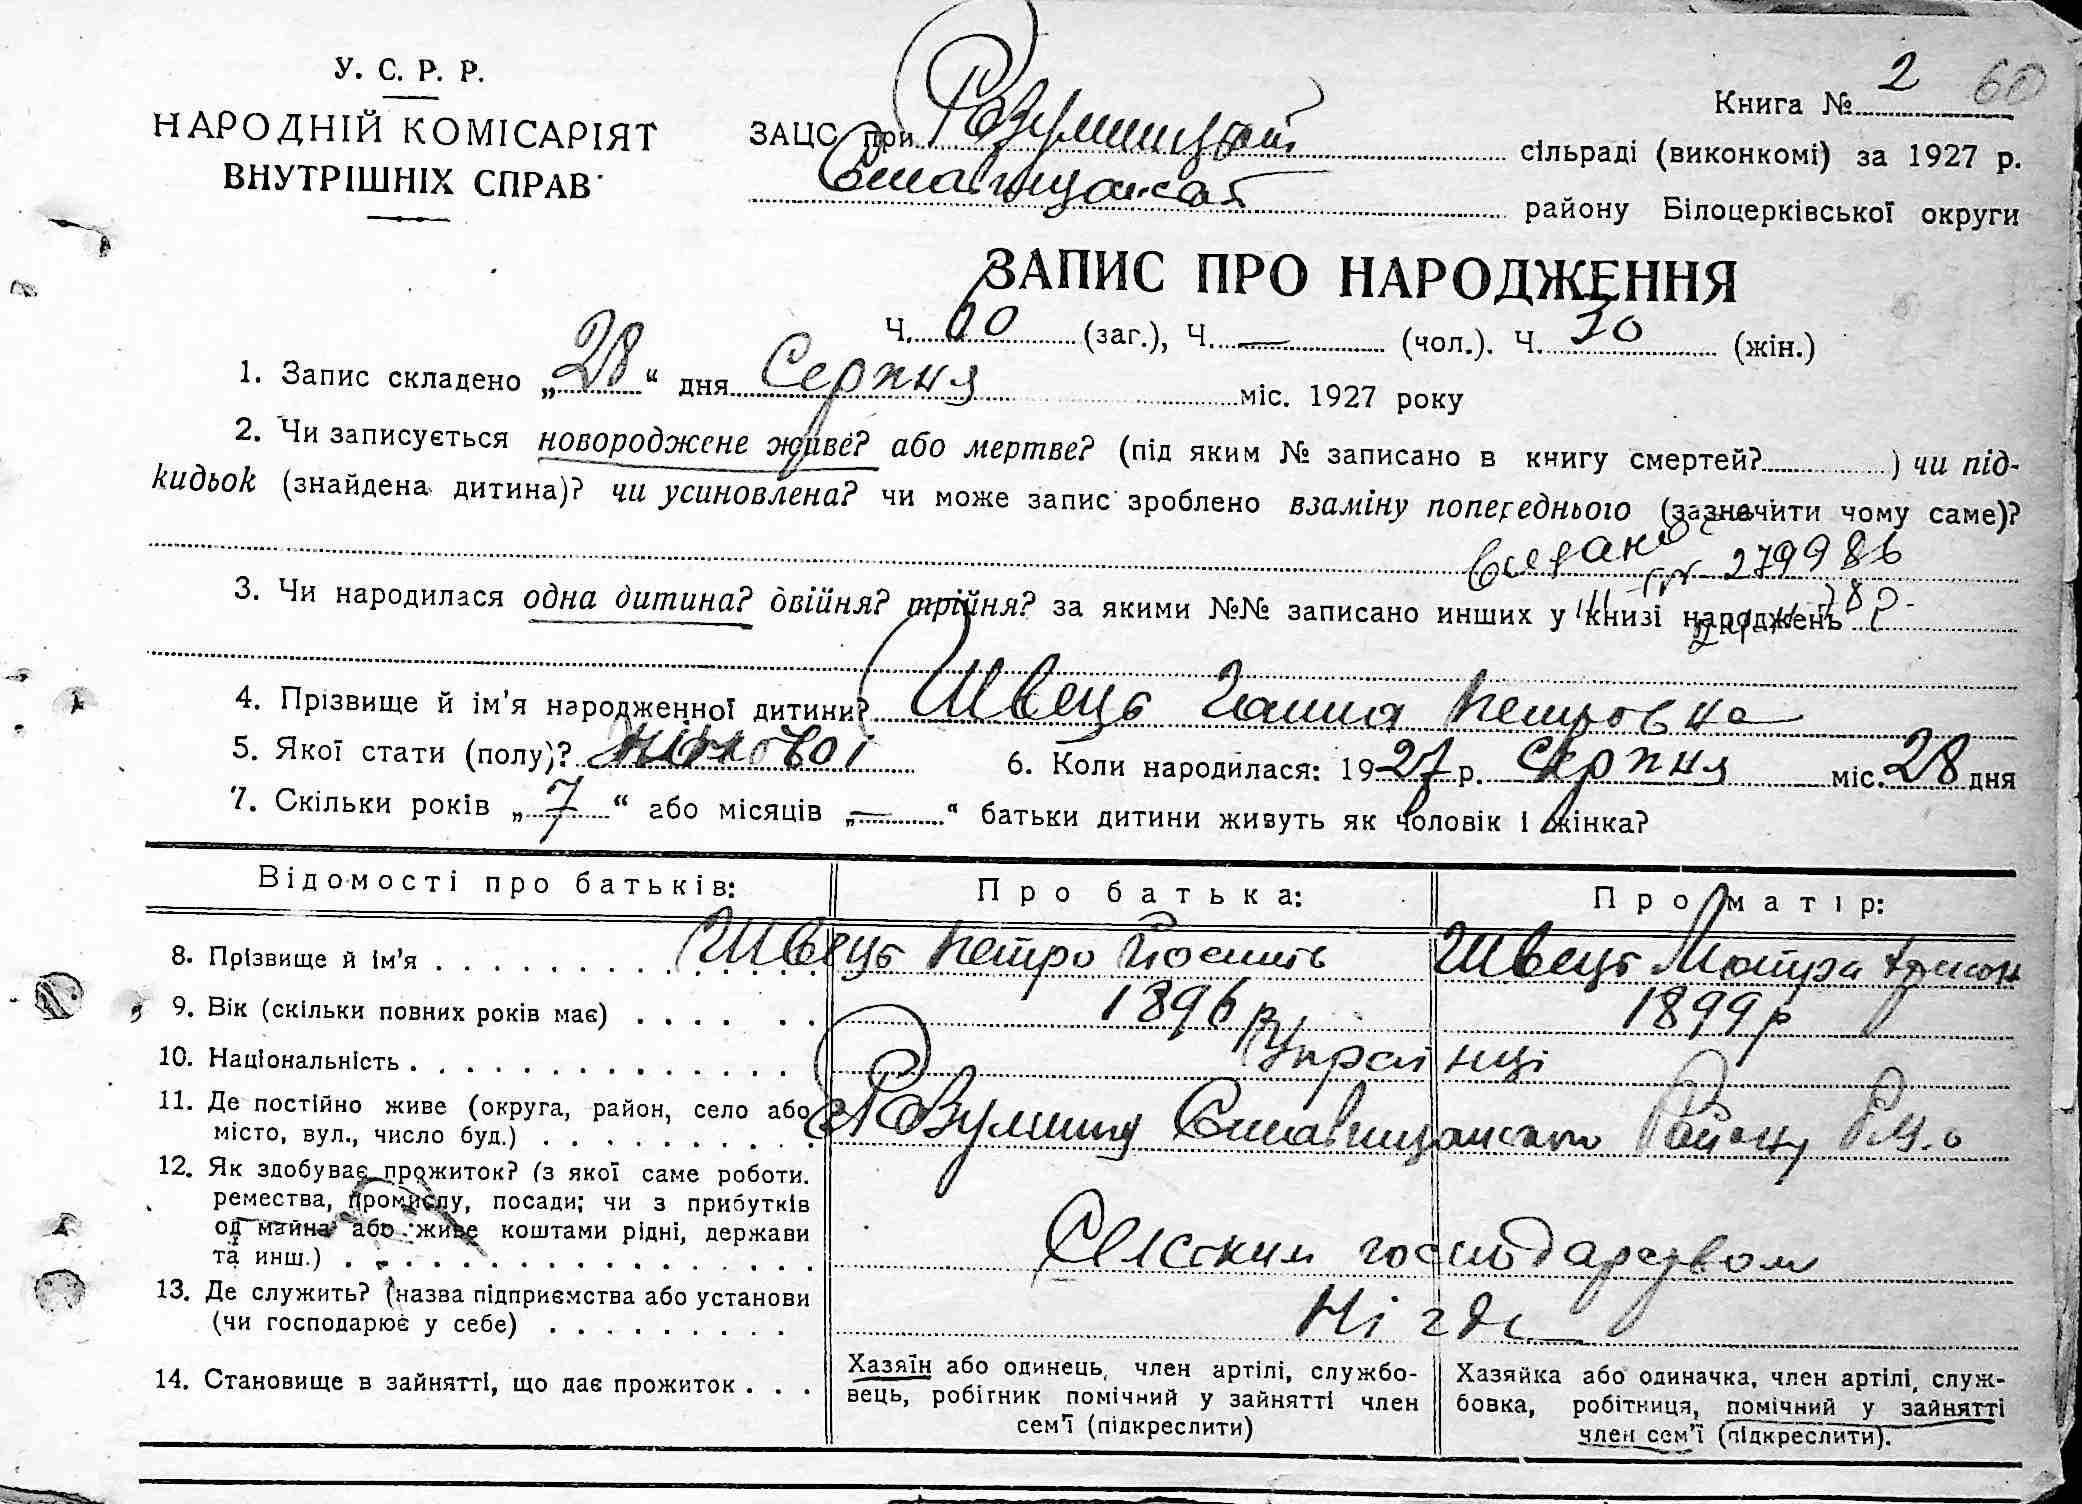 У. С. Р. Р.
НАРОДНІЙ КОМІСАРІЯТ
ВНУТРІШНІХ СПРАВ
Книга № 2 60
ЗАЦС при Розумницькій сільраді (виконкомі) за 1927 р.
Ставищанськ. району Білоцерківської округи
ЗАПИС ПРО НАРОДЖЕННЯ
Ч. 60 (заг.), Ч. — (чол.). Ч. 30 (жін.)
1. Запис складено „28“ дня Серпня міс. 1927 року
2. Чи записується новороджене живе? або мертве? (під яким № записано в книгу смертей? ) чи під-
кидьок (знайдена дитина)? чи усиновлена? чи може запис зроблено взаміну попереднього (зазначити чому саме)?
279986
3. Чи народилася одна дитина? двійня? трійня? за якими №№ записано инших у книзі народжень
4. Прізвище й ім'я народженної дитини? Швець Ганна Петровна
5. Якої стати (полу)? жіночвоі 6. Коли народилася: 1927 р. Серпня міс. 28 дня
7. Скільки років „7“ або місяців „—“ батьки дитини живуть як чоловік і жінка?
Відомості про батьків: Про батька: Про матір:
8. Прізвище й ім'я . . . . Швець Петро Йосипів Швець Мотря
9. Вік (скільки повних років має) . . . . 1896 р 1899 р
10. Національність . . . . Українці
11. Де постійно живе (округа, район, село або
місто, вул., число буд.) . . . . Розумниця Ставищанського Району
12. Як здобуває прожиток? (з якої саме роботи.
ремества, промислу, посади; чи з прибутків
од майна або живе коштами рідні, держави
та инш.) . . . . Сельским господарством
13. Де служить? (назва підприємства або установи
(чи господарює у себе) . . . . Нігде
14. Становище в зайнятті, що дає прожиток . . .
Хазяїн або одинець, член артілі, службо-
вець, робігник помічний у зайнятті член
сем'ї (підкреслити)
Хазяйка або одиначка, член артілі, служ-
бовка, робітниця, помічний у зайнятті
член сем'ї (підкреслити).